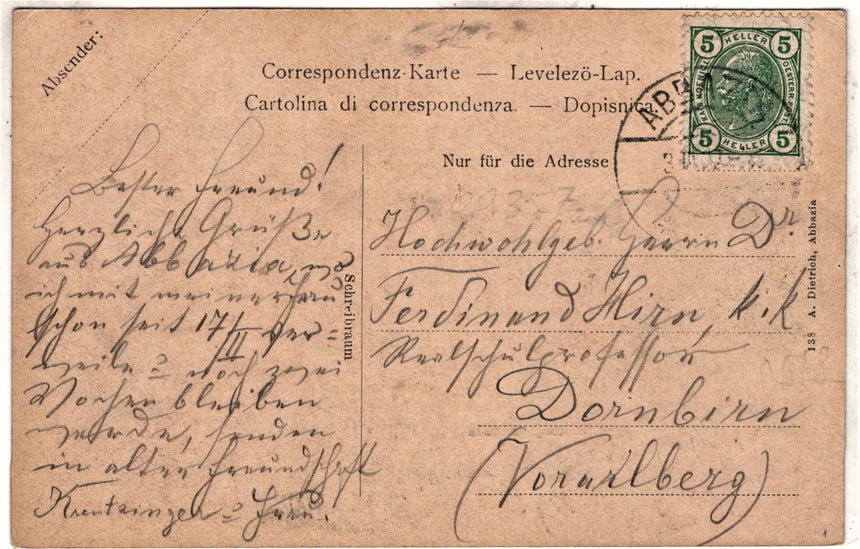 Absender:
Correspondenz-Karte — Levelezö-Lap.
Cartolina di correspondenza. — Dopisnica.
Nur für die Adresse
5 HELLER 5
5 HELLER 5
ABB
Bester Freund!
Herzliche Grüße
aus Abbazia, wo
ich mit meiner Frau
schon seit 17/II ver=
weile u noch zwei
Wochen bleiben
werde, senden
in alter Freundschaft
Kreutzinger u Frau.
Schreibraum
Hochwohlgeb. Herrn Dr.
Ferdinand Hirn, k. k.
Realschulprofessor
Dornbirn
(Vorarlberg)
138 A. Dietrich, Abbazia